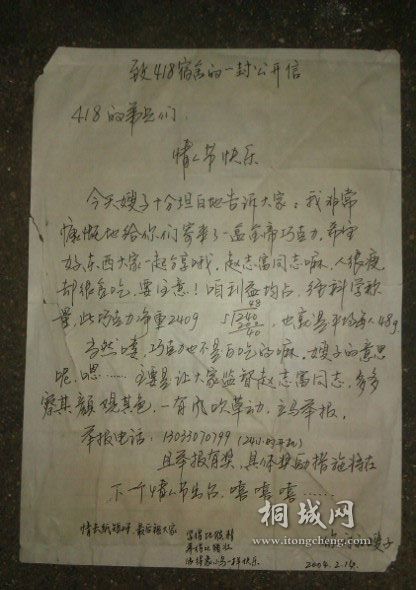 致418宿舍的一封公开信
418的弟兄们:
情人节快乐
今天嫂子十分坦白地告诉大家:我非常
慷慨地给你们寄来了一盒金帝巧克力,希望
好东西大家一起分享哦,赵志富同志嘛,人很瘦
却很贪吃,要注意!咱利益均占,经科学称
量,此巧克力净重240g 5 240 48 200 40,也就是平均每人48g.
当然喽,巧克力也不是白吃的嘛,嫂子的意思
呢,嗯……主要是让大家监督赵志富同志,多多
察其颜观其色,一有风吹草动,立马举报。
举报电话:13033070799(24小时开机)
且举报有奖,具体奖励措施将在
下一个情人节出台,嘻嘻嘻……
最后祝大家
天天快乐
嫂子
2004.2.14.
桐城网
www.itongcheng.com